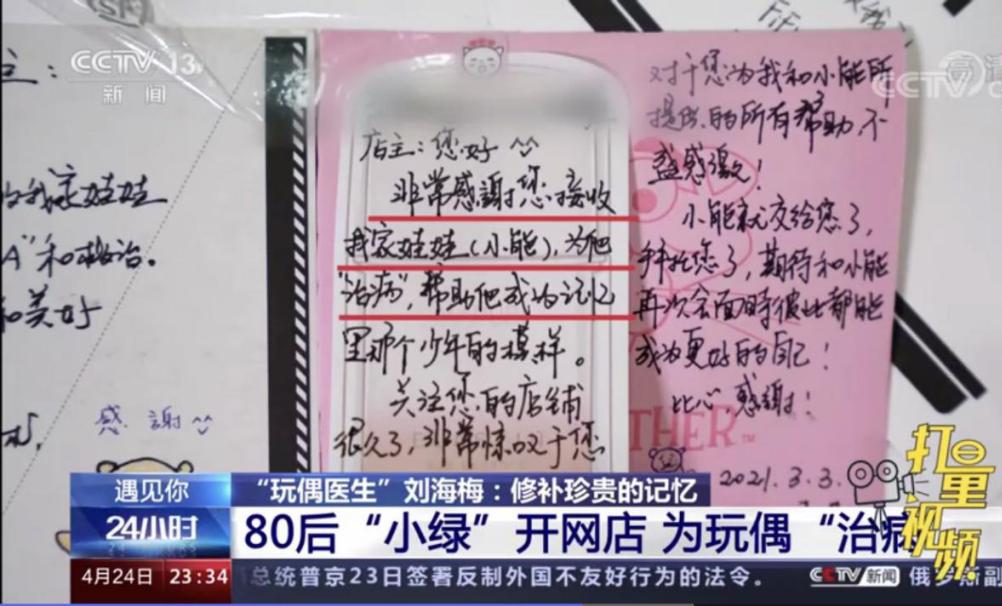 SF
CCTV 13
新闻
CCTV 高清
主：
的我家娃娃
A”和政治。
和美好
感謝
店主：您好
非常感謝您接收
我家娃娃（小熊），为他
“治病”，帮助他成为记忆
里那个少年的模样。
关注您的店铺
很久了，非常惊叹于您
对于您为我和小熊所
提供的所有帮助，不
盛感激！
小熊就交给您了，
拜托您了，期待和小熊
再次会面时彼此都能
成为更好的自己！
比心 感謝！
THER™
2021.3.3.
遇见你
24小时
“玩偶医生”刘海梅：修补珍贵的记忆
80后“小绿”开网店 为玩偶“治病
打量视频
4月24日 23:34
总统普京23日签署反制外国不友好行为的法令。 CCTV新闻 俄罗斯副